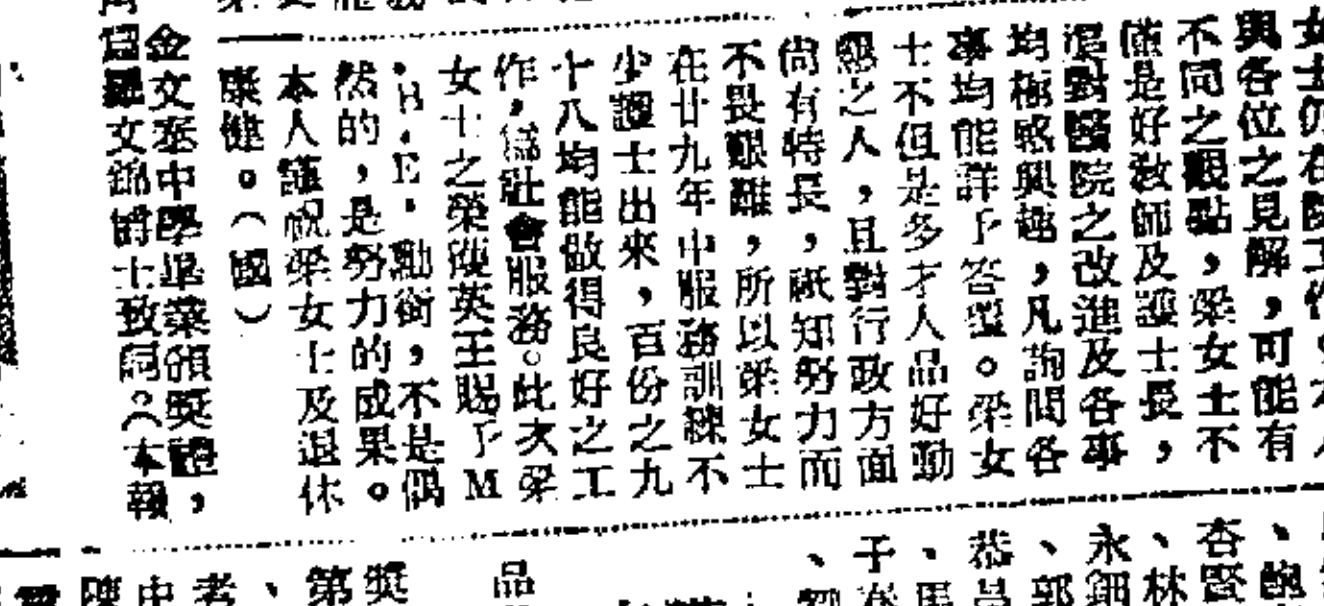 女士仍在院工作，本人
與各位之見解，可能有
不同之觀點，梁女士不
僅是好教師及護士長，
還對醫院之改進及各事
均極感興趣，凡詢問各
事均能詳予答覆。梁女
士不但是多才人品好勤
懇之人，且對行政方面
尙有特長，祇知努力而
不畏艱難，所以梁女士
在廿九年中服務訓練不
少護士出來，百份之九
十八均能做得良好之工
作，爲社會服務。此次梁
女士之榮獲英王賜予M
．B．E．勳銜，不是偶
然的，是努力的成果。
本人謹祝梁女士及退休
康健。（國）
金文泰中學畢業頒獎禮，
羅文錦爵士致詞。（本報
杏賢
、林
永鈿
、郭
恭昌
、馬
子
品
獎
第
、
考
中
陳